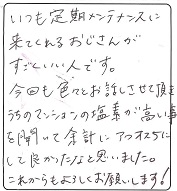 いつも定期メンテナンスに
来てくれるおじさんが
すごくいい人です。
今回も色々とお話しさせて頂き
うちのマンションの塩素が高い事
を聞いて余計にアクオス75に
して良かったなと思いました。
これからもよろしくお願いします!